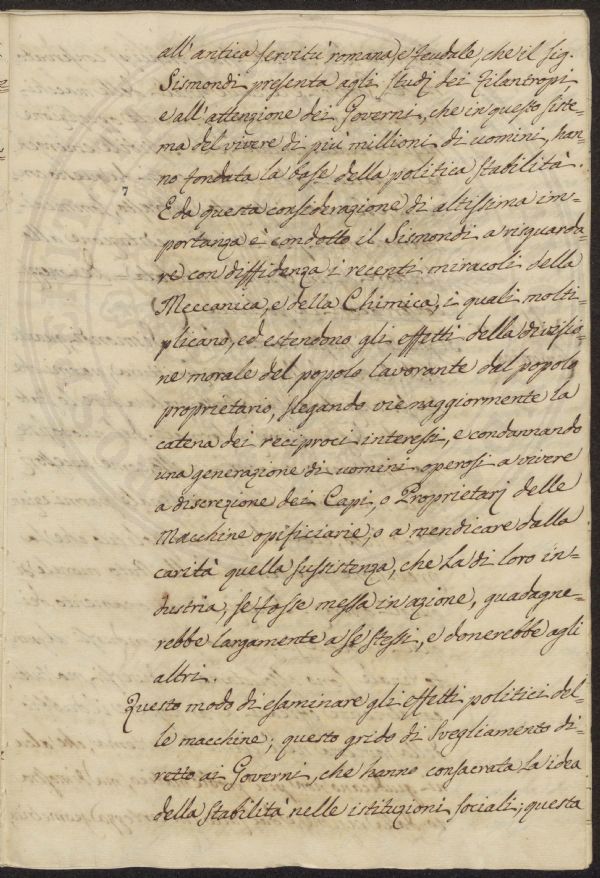 all'antica servitù romana, e feudale, che il sig.
Sismondi presenta agli studj dei Filantropi
e all'attenzione dei Governi, che in questo siste-
ma del vivere di più millioni di uomini, han-
no fondata la base della politica stabilità.
E da questa considerazione di altissima im-
portanza è condotto il Sismondi a risguarda-
re con diffidenza i recenti miracoli della
Meccanica, e della Chimica, i quali molti-
plicano, ed estendono gli effetti della divisio-
ne morale del popolo lavorante dal popolo
proprietario, slegando vie maggiormente la
catena dei reciproci interessi, e condannando
una generazione di uomini operosi a vivere
a discrezione dei Capi, o Proprietarj delle
Macchine opificiarie, o a mendicare dalla
carità quella sussistenza, che la di loro in-
dustria, se fosse messa in azione, guadagne-
rebbe largamente a se stessi, e donerebbe agli
altri.
Questo modo di esaminare gli effetti politici del-
le macchine; questo grido di svegliamento di-
retto ai Governi, che hanno consacrata la idea
della stabilità nelle istituzioni sociali; questa